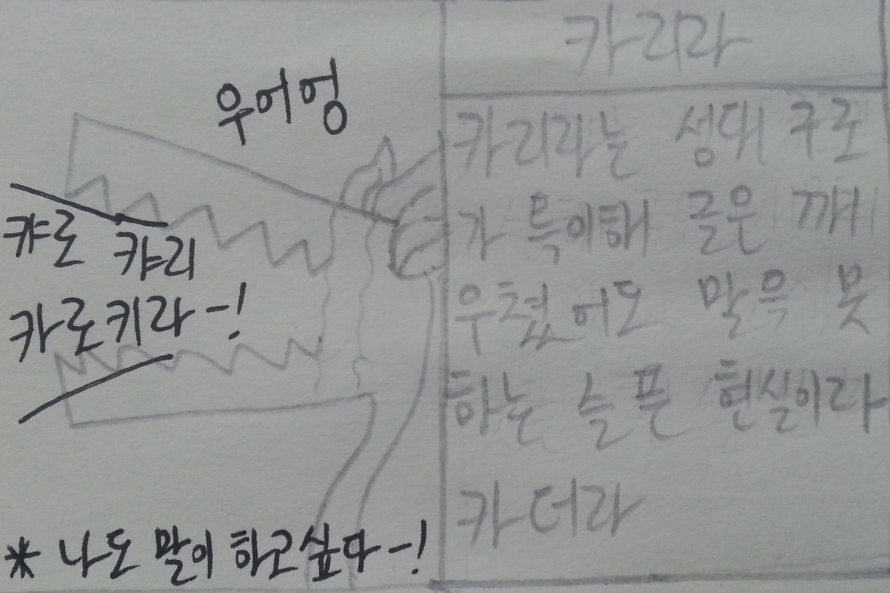 우어엉
캬로 캬리
카로키라-!
* 나도 말이 하고싶다-!
카리라
카리라는 성대 구조
가 특이해 글은 깨
우쳤어도 말은 못
하는 슬픈 현실이라
카더라